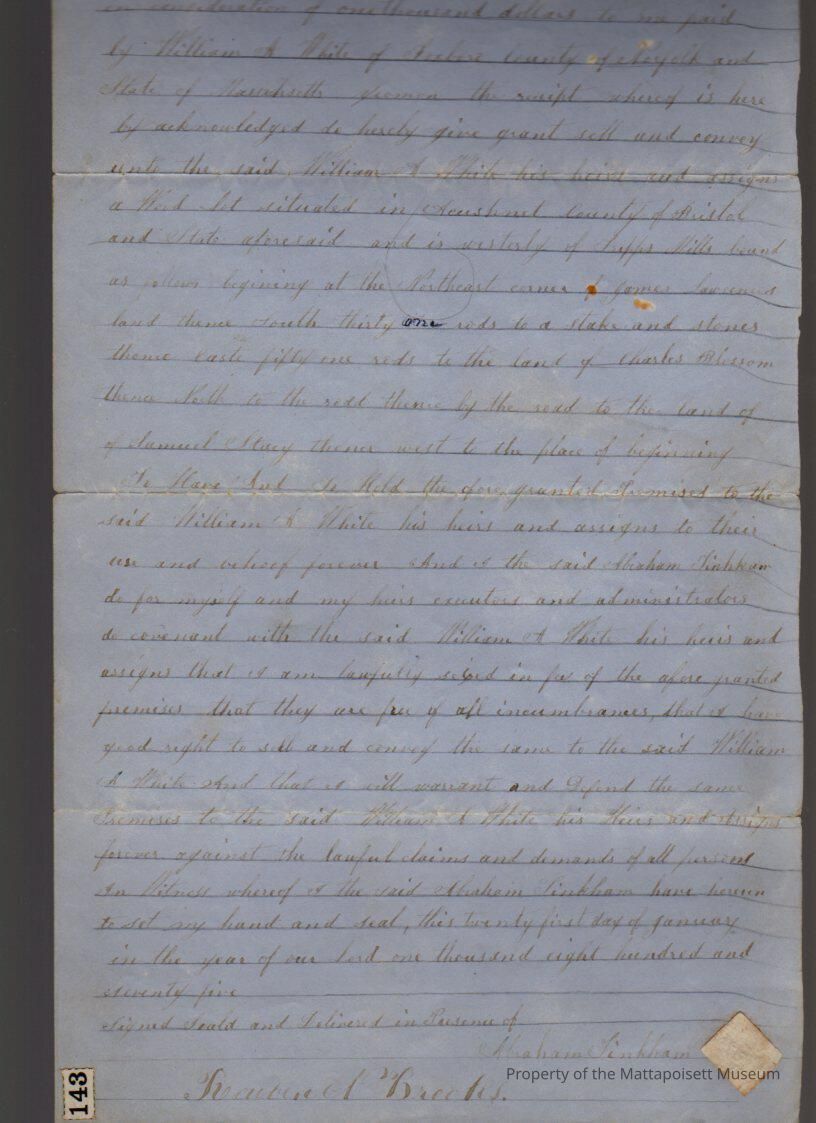 in consideration of one thousand dollars to me paid
by William A White of Foxboro County of Norfolk and
State of Massachsetts yeoman the receipt whereof is here
by acknowledged do hereby give grant sell and convey
unto the said William A White his heirs and assigns
a Wood lot situated in Acushnet County of Bristol
and State aforesaid and is westerly of Mills bound
as follows begining at the Northeast corner of James Lawrences
land thence South thirty one rods to a stake and stones
thence East fifty one rods to the land of Charles Blossom
thence North to the road thence by the road to the land of
of Samuel Stacy thence west to the place of beginning
To Have And To Hold the afore granted Premises to the
said William A White his heirs and assigns to their
use and behoof forever And I the said Abraham Tinkham
do for myself and my heirs executors and administrators
do covenant with the said William A White his heirs and
assigns that I am lawfully seized in fee of the afore granted
premises that they are free of all incumbrances, that I have
good right to sell and convey the same to the said William
A White And that I will warrant and Defend the same
Premises to the said William A White his Heirs and Assigns
forever against the lawful claims and demands of all persons
In Witness whereof I the said Abraham Tinkham have herein
to set my hand and seal, this twenty first day of January
in the year of our lord one thousand eight hundred and
seventy five
Signed Seald and Delivered in Presence of
Abraham Tinkham
Property of the Mattapoisett Museum
Brooks.
143